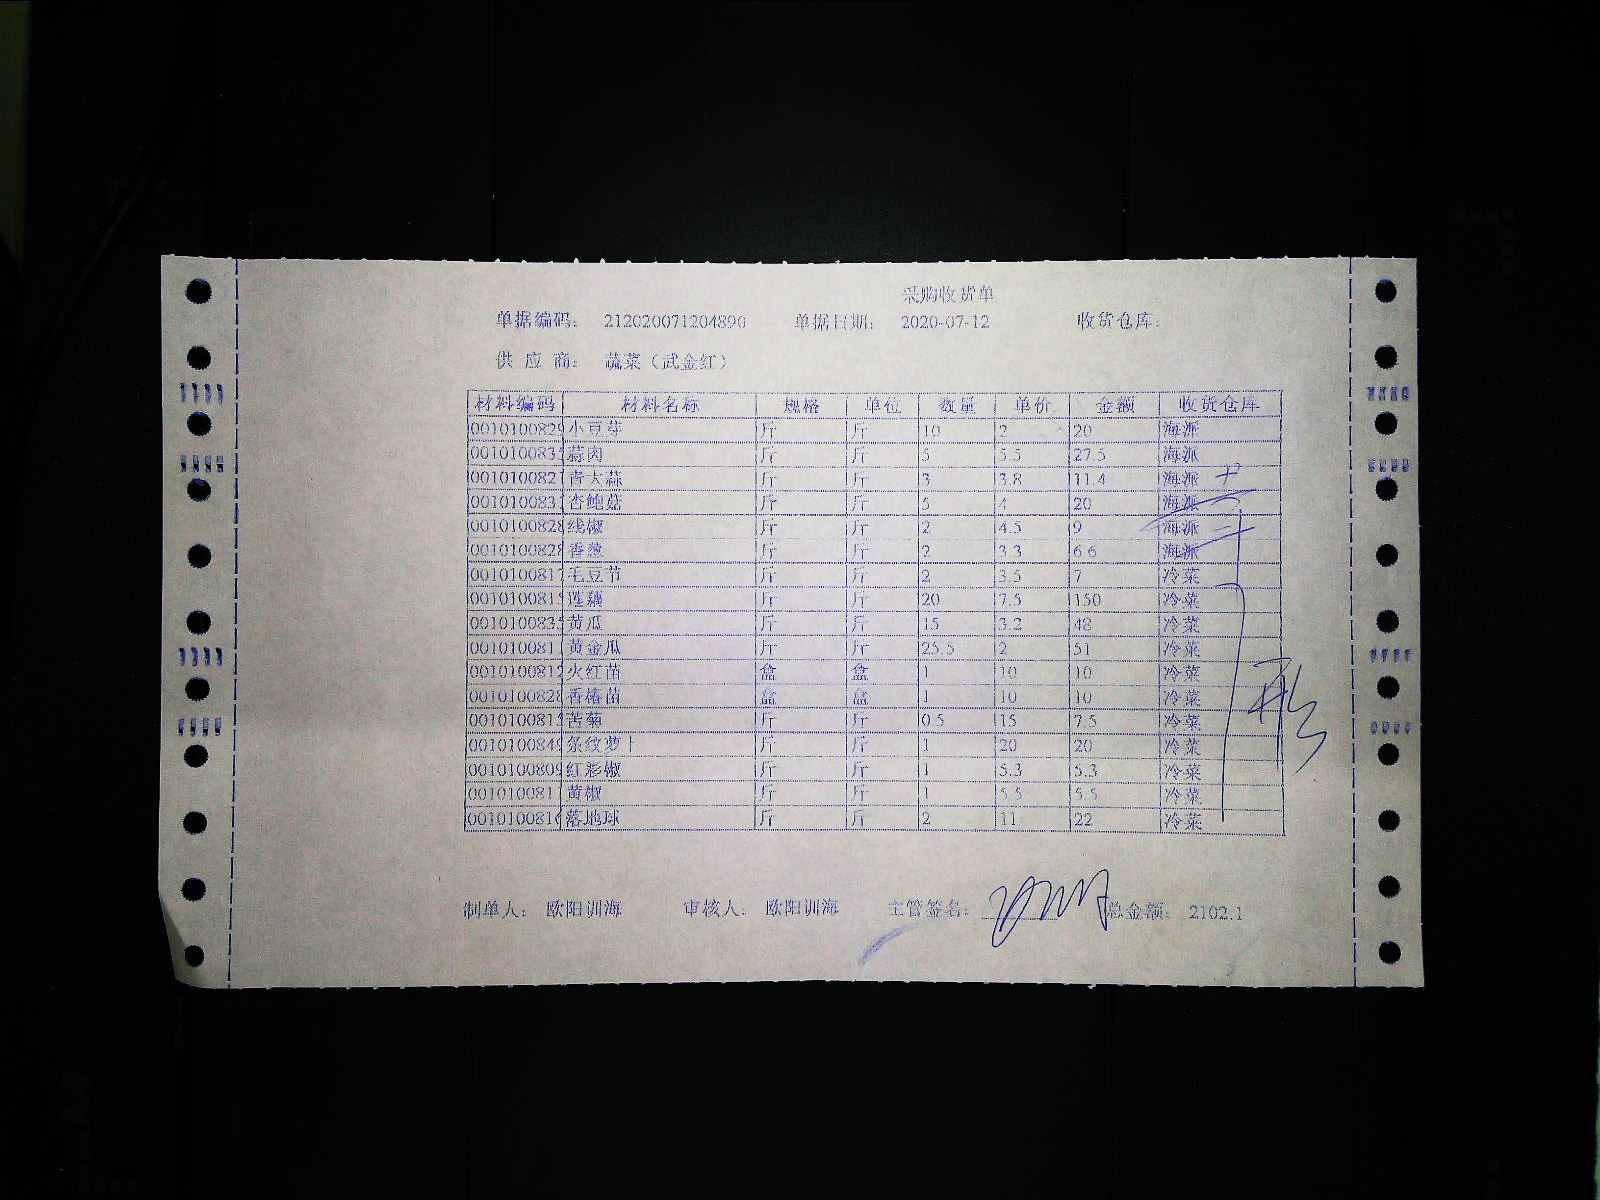 采购收货单
单据编码： 212020071204890 单据日期： 2020-07-12 收货仓库：
供 应 商： 蔬菜（武金红）
材料编码 材料名称 规格 单位 数量 单价 金额 收货仓库
0010100829 小豆芽 斤 斤 10 2 20 海派
001010083 蒜肉 斤 斤 5 5.5 27.5 海派
001010082 青大蒜 斤 斤 3 3.8 11.4 海派
001010083 杏鲍菇 斤 斤 5 4 20 海派
0010100828 线椒 斤 斤 2 4.5 9 海派
001010082 香葱 斤 斤 2 3.3 6.6 海派
001010081 毛豆节 斤 斤 2 3.5 7 冷菜
001010081 莲藕 斤 斤 20 7.5 150 冷菜
001010083 黄瓜 斤 斤 15 3.2 48 冷菜
001010081 黄金瓜 斤 斤 25.5 2 51 冷菜
001010081 火红苗 盒 盒 1 10 10 冷菜
0010100828 香椿苗 盒 盒 1 10 10 冷菜
001010081 苦菊 斤 斤 0.5 15 7.5 冷菜
001010084 条纹萝卜 斤 斤 1 20 20 冷菜
0010100809 红彩椒 斤 斤 1 5.3 5.3 冷菜
001010081 黄椒 斤 斤 1 5.5 5.5 冷菜
001010081 落地球 斤 斤 2 11 22 冷菜
制单人： 欧阳训海 审核人： 欧阳训海 主管签名： 总金额： 2102.1